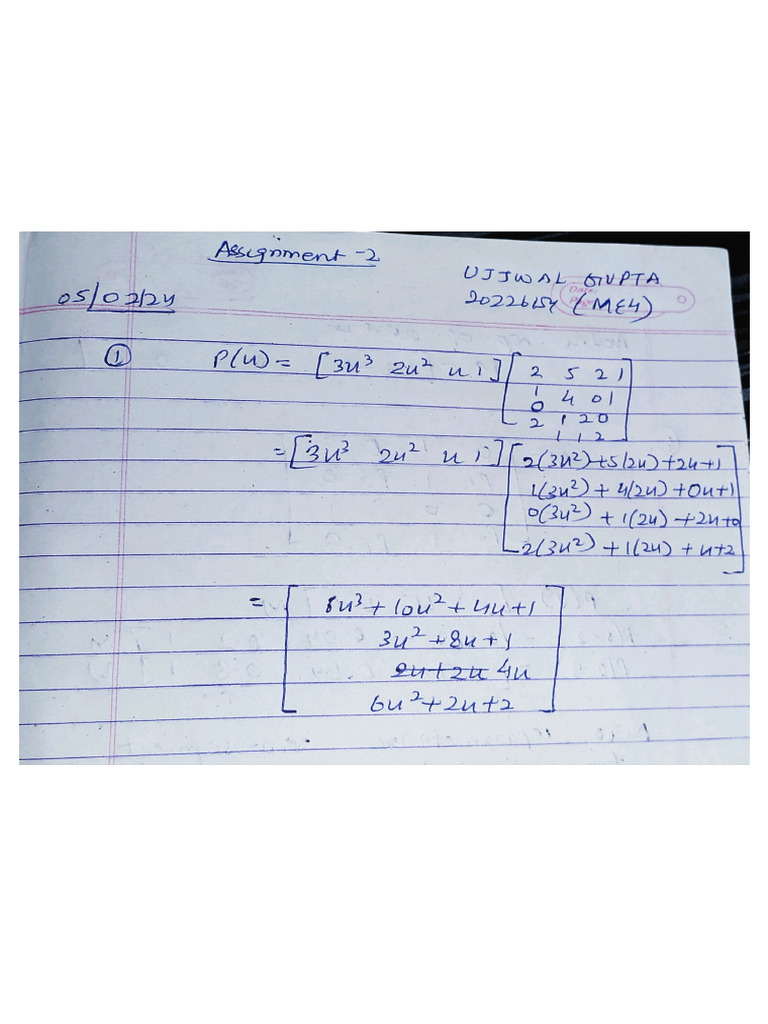 Assignment - 2
UJJWAL GUPTA
05/02/24
20226154 (ME4)
① P(u) = [3u³ 2u² u 1] [2 5 2 1
1 4 0 1
0 1 2 0
2 1 1 2]
= [3u³ 2u² u 1] [2(3u²)+5(2u)+2u+1
1(3u²) + 4(2u) + 0u+1
0(3u²) + 1(2u) + 2u+0
2(3u²) + 1(2u) + u+2]
= [8u³ + 10u² + 4u + 1
3u² + 8u + 1
2u + 2u 4u
6u² + 2u + 2]